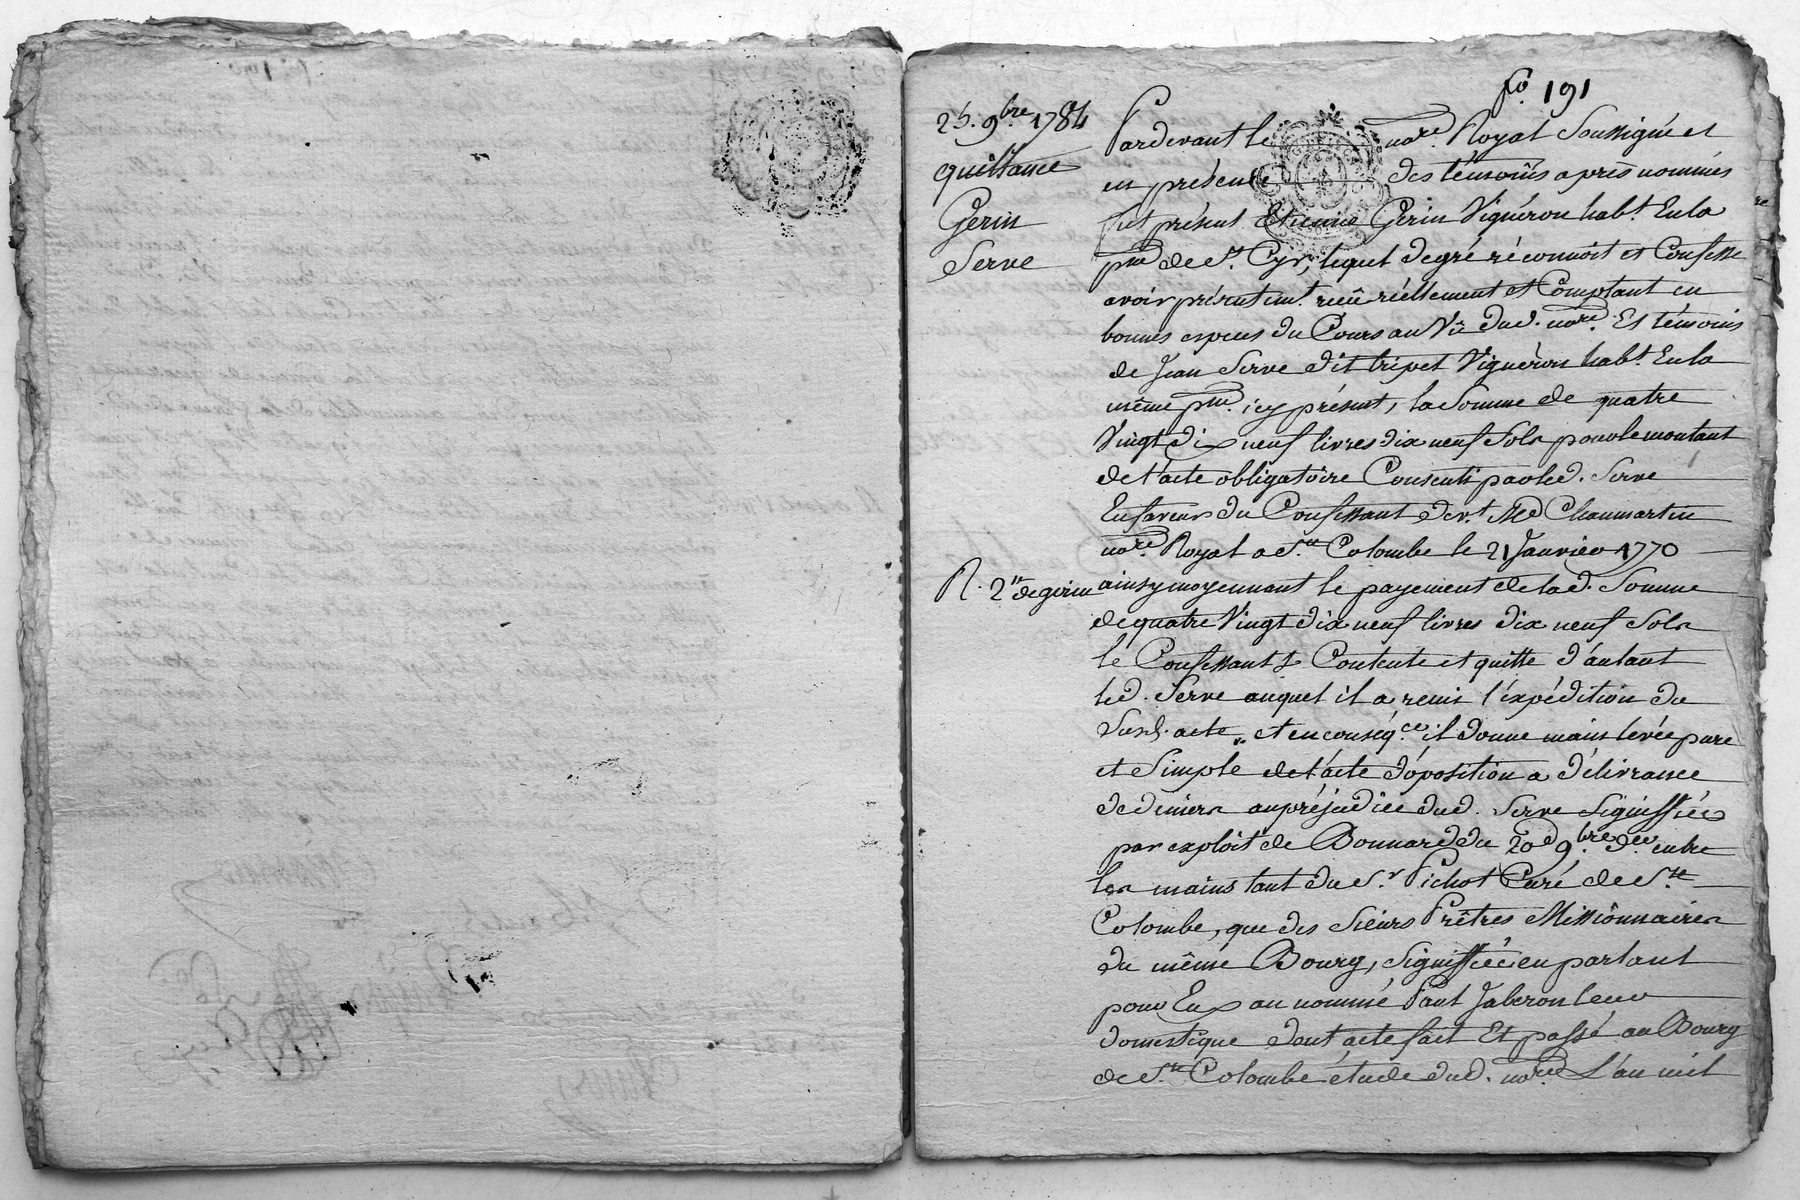 fo. 191
25. 9bre 1784
quittance
Gerin
Serve
Pardevant le nore. Royal Soussigné et
en présence des témoins après nommés
fut présent Etienne Gerin Vigneron habt. En la
psse de St. Cyr, lequel de gré réconnoit et Confesse
avoir présentemt. reçû réellement et Comptant en
bonnes espèces du Cours au Vû dud. nore. Et témoins
de Jean Serve dit tripet Vigneron habt. En la
même psse. icy présent, la Somme de quatre
Vingt dix neuf livres dix neuf Sols pour le montant
de l'acte obligatoire Consenti par led. Serve
En faveur du Confessant devt. Me Chaumartin
nore. Royal a Ste Colombe le 21 Janvier 1770
R. 2s de gerin
ainsy moyennant le payement de lad. Somme
de quatre Vingt dix neuf livres dix neuf Sols
le Confessant Contente et quitte d'autant
led. Serve auquel il a remis l'expédition du
Susd. acte, et en conséqce. il donne main levée pure
et Simple de l'acte d'oposition a délivrance
de deniers au préjudice dud. Serve Signiffiée
par exploit de Bonnard du 20 9bre der entre
les mains tant du Sr. Pichot Curé de Ste.
Colombe, que des Sieurs Prêtres Missionnaires
du même Bourg, Signiffiée en parlant
pour Eux au nommé Paul Jaberon leur
domestique dont acte fait Et passé au Bourg
de Ste Colombe étude dud. nore L'an mil